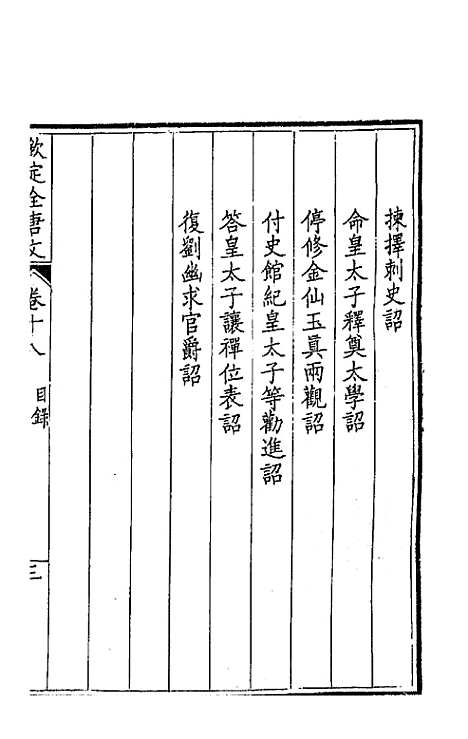 揀擇刺史詔
命皇太子釋奠太學詔
停修金仙玉眞兩觀詔
付史館紀皇太子等勸進詔
答皇太子讓禪位表詔
復劉幽求官爵詔
欽定全唐文
卷十八
目錄
三